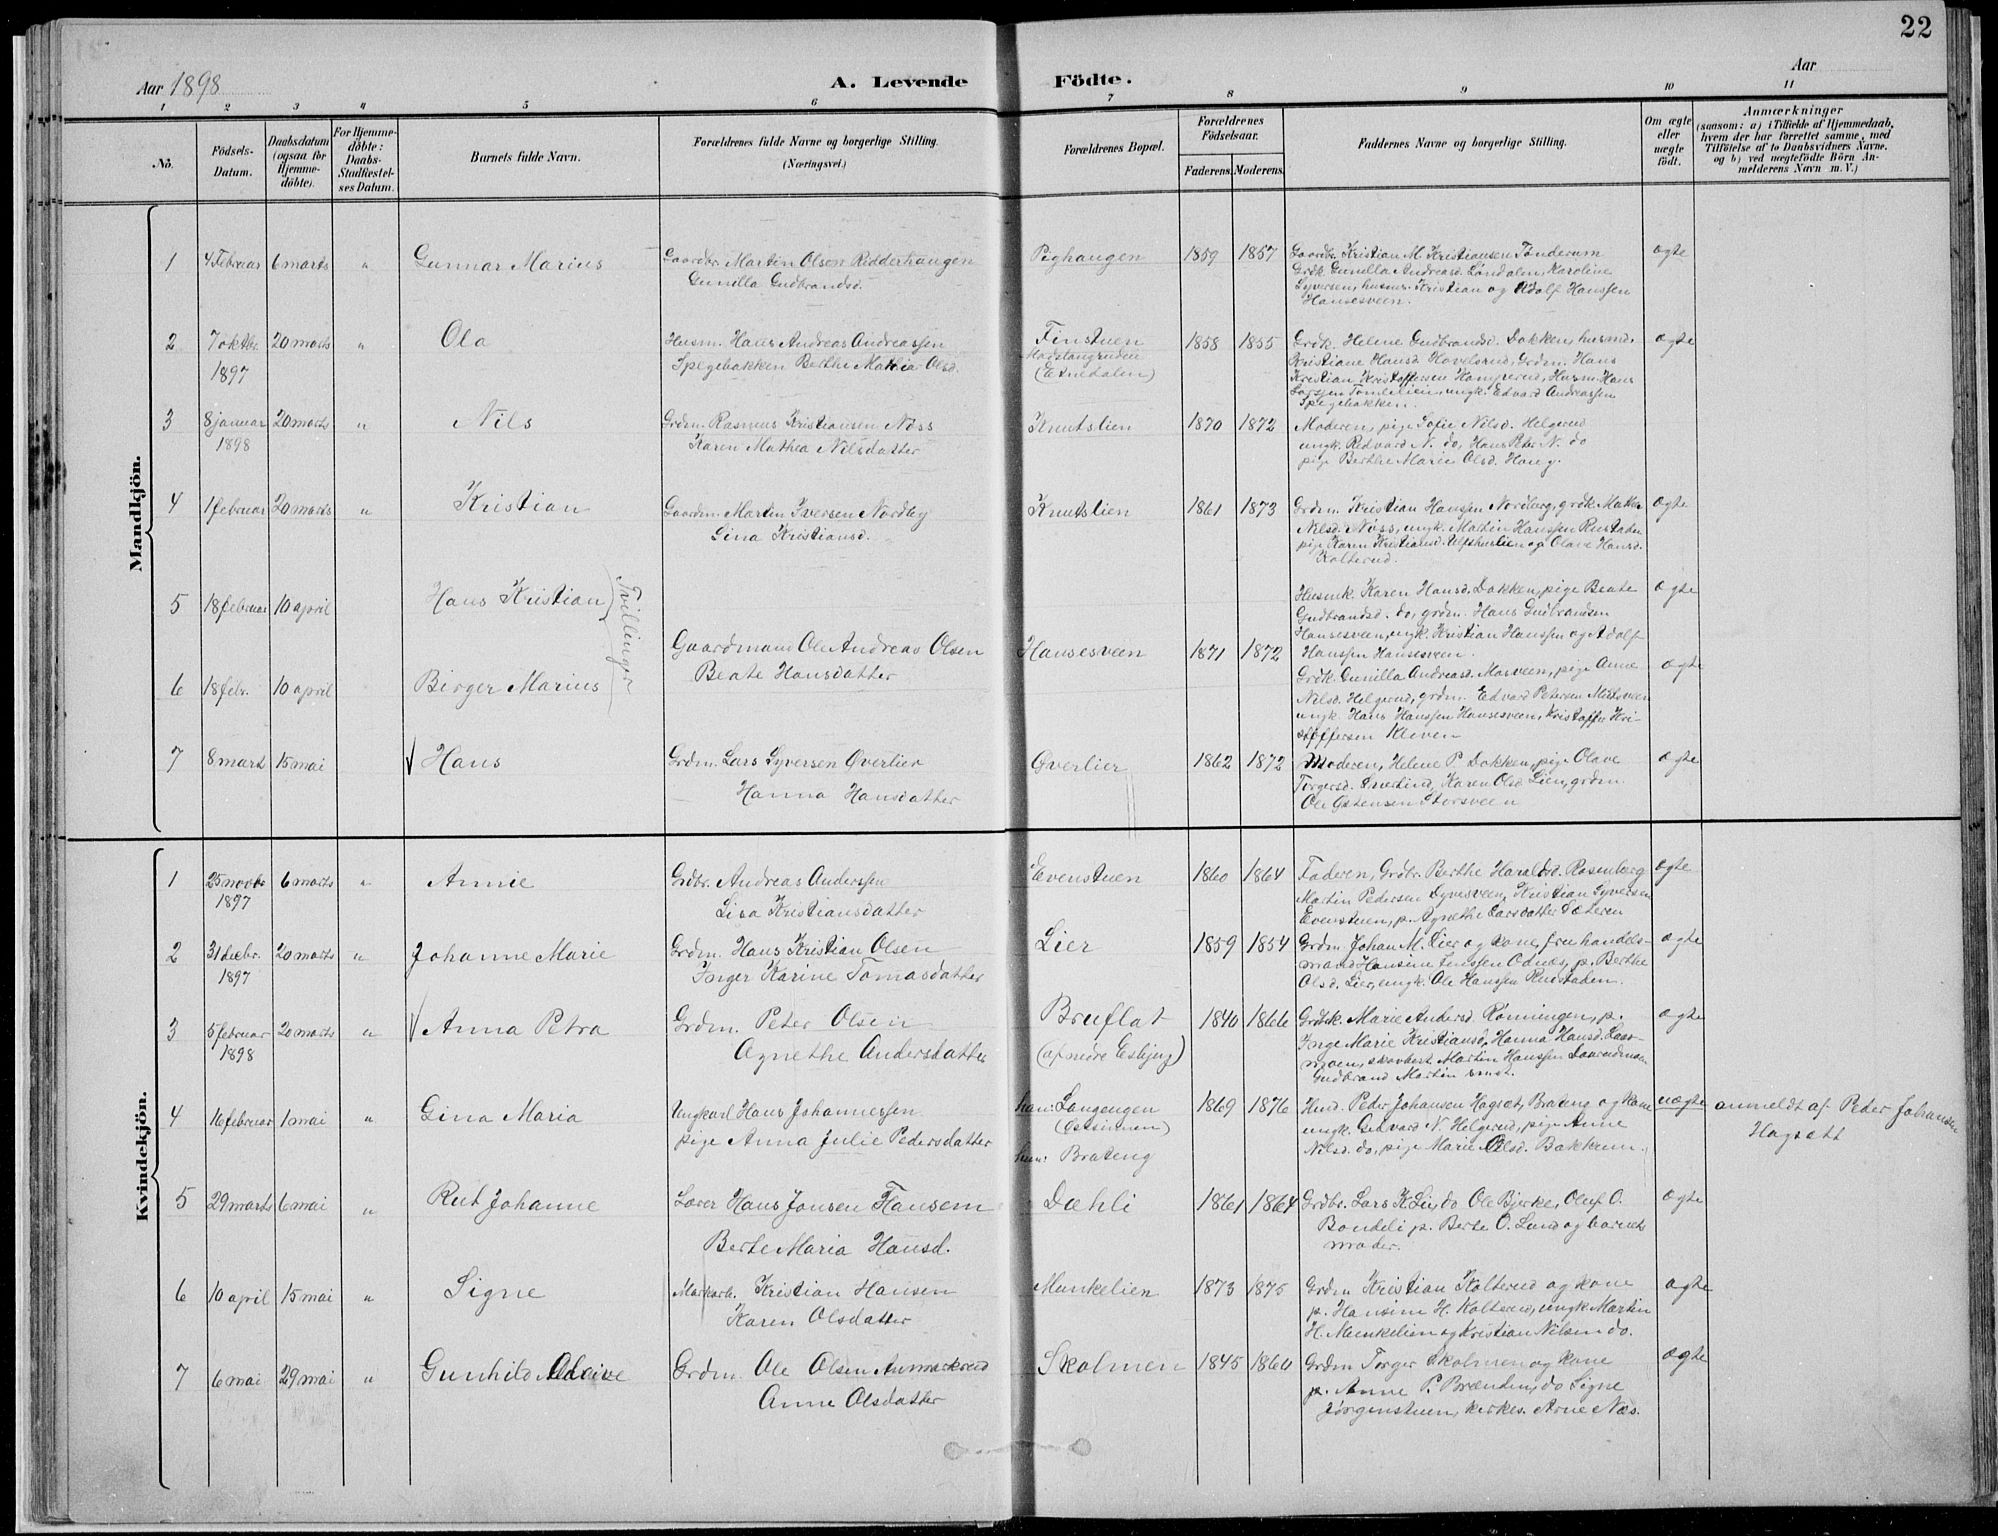 22
Aar 1898
A. Levende Födte.
Aar
1 2 3 4 5 6 7 8 9 10 11
No.
Födsels-Datum.
Daabsdatum (ogsaa for Hjemme-döbte).
For Hjemme-döbte: Daabs-Stadfæstel-ses Datum.
Barnets fulde Navn.
Forældrenes fulde Navne og borgerlige Stilling.
(Næringsvei.)
Forældrenes Bopæl.
Forældrenes Födselsaar.
Faderens. Moderens.
Faddernes Navne og borgerlige Stilling.
Om ægte eller uægte födt.
Anmærkninger
(saasom: a) i Tilfælde af Hjemmedaab,
hvem der har forrettet samme, med
Tilföielse af to Daabsvidners Navne.
og b) ved uægtefödte Börn An-
melderens Navn m. V.)
Mandkjön.
1 4 Februar 6 marts " Gunnar Marius Gaardbr. Martin Olsen Ridderhaugen Pighaugen 1859 1857 Gaardbr. Kristian M. Kristiansen Tønderum ægte
Gunilla Gudbrandsd. Grdk. Gunilla Andreasd. Løndalen, Karoline
Syversen, husms. Kristian og Adolf Hanssen
Hansesveen.
2 7 oktbr. 20 marts " Ola Husm. Hans Andreas Andreassen Finstuen 1858 1855 Grdk. Helene Gudbrandsd. Dokken, husmd. ægte
1897 Spegebakken Berthe Mathia Olsd. (Etnedalen) Kristiane Hansd. Hovelsrud, Grdm. Hans
Kristian Kristoffersen Hamrerud, Husm. Hans
Larssen Tomlelien, ungk. Edvard Andreassen
Spegebakken.
3 8 januar 20 marts " Nils Grdm. Rasmus Kristiansen Næss Knutslien 1870 1872 Moderen, pige Sofie Nilsd. Helgerud
1898 Karen Mathea Nilsdatter ungk. Redvard N. do, Hans Peter N. do
pige Berthe Marie Olsd. Haug.
4 1 februar 20 marts " Kristian Gaardm. Martin Iversen Nordby Knutslien 1861 1873 Grdm. Kristian Hansen Nordberg, grdk. Mathea ægte
Gina Kristiansd. Nilsd. Næss, ungk. Martin Hanssen Rustaden
pige Karen Kristiansd. Ulfshuslien og Olave Hansd.
Kolterud.
5 18 februar 10 april Hans Kristian Tvillinger Husmk. Karen Hansd. Dokken, pige Beate ægte
Gudbrandsd. do, grdm. Hans Gudbrandsen
Gaardmand Ole Andreas Olsen Hansesveen 1871 1872 Hansesveen, ungk. Kristian Hanssen og Adolf
Beate Hansdatter Hanssen Hansesveen.
6 18 febr. 10 april Birger Marius Grdk. Gunilla Andreasd. Mosveen, pige Anne ægte
Nilsd. Helgerud, grdm. Edvard Petersen Midtsveen
ungk. Hans Hanssen Hansesveen, Kristoffer Kri-
stoffersen Kleven
7 8 mart 15 mai Hans Grdm. Lars Syversen Øverlier Øverlier 1862 1872 Moderen, Helene P. Dokken, pige Olave ægte
Hanna Hansdatter Torgersd. Snertrud, Karen Olsd. Lien, grdm.
Ole Østensen Storsveen
Kvindekjön.
1 25 novbr. 6 marts " Annie Grdbr. Andreas Anderssen Evenstuen 1860 1864 Faderen, Grdbr. Berthe Haraldsd. Rosenberg ægte
1897 Lisa Kristiansdatter Martin Pedersen Dyvesveen, Kristian Syversen
Evenstuen, p. Agnethe Larsdatter Sæteren
2 31 decbr. 20 marts " Johanne Marie Grdm. Hans Kristian Olsen Lier 1859 1854 Grdm. Johan M. Lier og kone, fru handels- ægte
1897 Inger Karine Tomasdatter mand Hansine Jenssen Odnæs, p. Berthe
Olsd. Lier, ungk. Ole Hanssen Rustaden.
3 5 februar 20 marts " Anna Petra Grdm. Peter Olsen Bruflat 1840 1866 Grdk. Marie Andersd. Rønningen, p. ægte
1898 Agnethe Andersdatter (af nedre Esbjug) Inge Marie Kristiansd., Hanna Hansd. Lass-
moen, skovbest. Martin Hanssen
Gudbrand Martin
4 16 februar 1 mai " Gina Maria Ungkarl Hans Johannessen han: Langengen 1869 1876 Husd. Peder Johansen Hagset, Brateng og kone uægte anmeldt af Peder Johansen
pige Anna Julie Pedersdatter hun: Brateng ungk. Edvard N. Helgerud, pige Anne Hagsett
Nilsd. do, pige Marie Olsd. Bakken.
5 29 marts 6 mai " Rut Johanne Lærer Hans Jonsen Flansem Dæhli 1861 1864 Grdbr. Lars K. Lie, do Ole Bjerke, Oluf O. ægte
Berte Maria Hansd. Bondeli p. Berte O. Lund og barnets
moder.
6 10 april 15 mai " Signe Markarb. Kristian Hansen Munkelien 1873 1875 Grdm Kristian Kolterud og kone ægte
Karen Olsdatter p. Hansine H. Kolterud, ungk Martin
H. Munkelien og Kristian Nilsen do.
7 6 mai 29 mai " Gunhild Grdm. Ole Olsen Aamarkrud Skolmen 1845 1860 Grdm Torger Skolmen og kone ægte
Anne Olsdatter p. Anne P. Brænden, do Signe
Jörgenstuen, kirkes. Arne Næs.